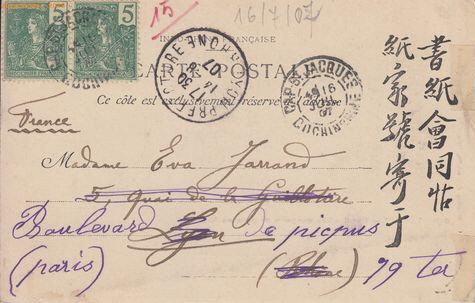 5 5
15
16/7/07
INDO-CHINE FRANÇAISE
CARTE POSTALE
Ce côté est exclusivement réservé à l'adresse
LYON
RHONE
07
CAP ST JACQUES
16
07
COCHINCHINE
書紙會同帖
紙家號寄于
France
Madame Eva Jarrand
5, Quai de la Guillotière
Boulevard Lyon de picpus
(paris) (Rhône) 79 ter